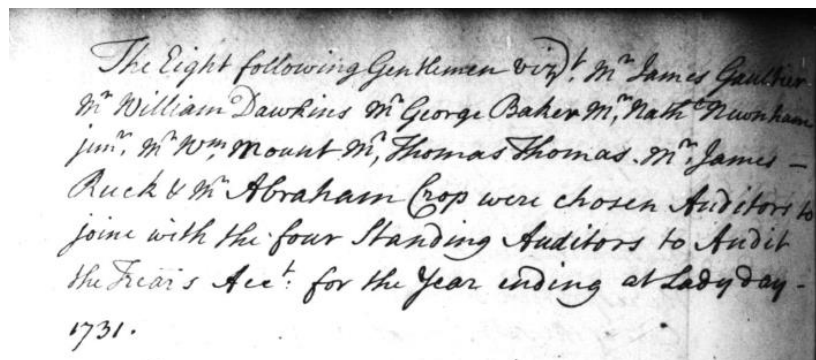 The Eight following Gentlemen vizt. Mr James Gaultier
Mr William Dawkins Mr George Baker Mr, Nathl Newnham
junr, Mr Wm, Mount Mr, Thomas Thomas. Mr, James –
Ruck & Mr Abraham Crop were chosen Auditors to
joine with the four Standing Auditors to Audit
the Trear's Acct: for the Year ending at Lady day –
1731.